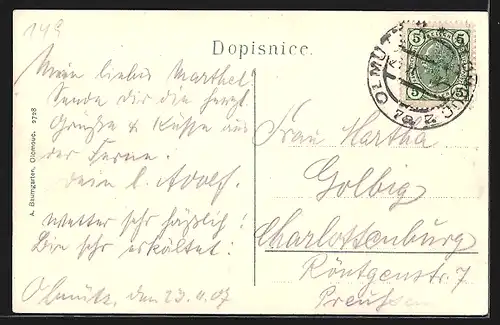 149
Dopisnice.
Mein liebes Marthel
Sende dir die herzl.
Grüße & Küsse aus
der Ferne.
dein l. Adolf.
Wetter sehr häßlich!
Bin sehr erkältet!
Olmütz, den 23.11.07
A. Baumgarten, Olomouc. 2728
5 5
5 5
OLMÜTZ
OLOMOUC
Frau Martha
Golbig
Charlottenburg
Röntgenstr. 7
Preussen